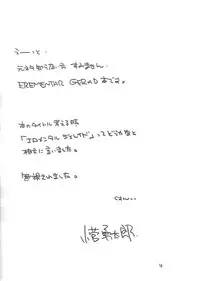 うーっと.
元ネタ知らない方 すみません.
EREMENTAR GERAD 本です.
本のタイトル考える時
「エロメンタル ジェレイド」ってどうかなと
相方に言いました.
無視されました.
くすん...
4